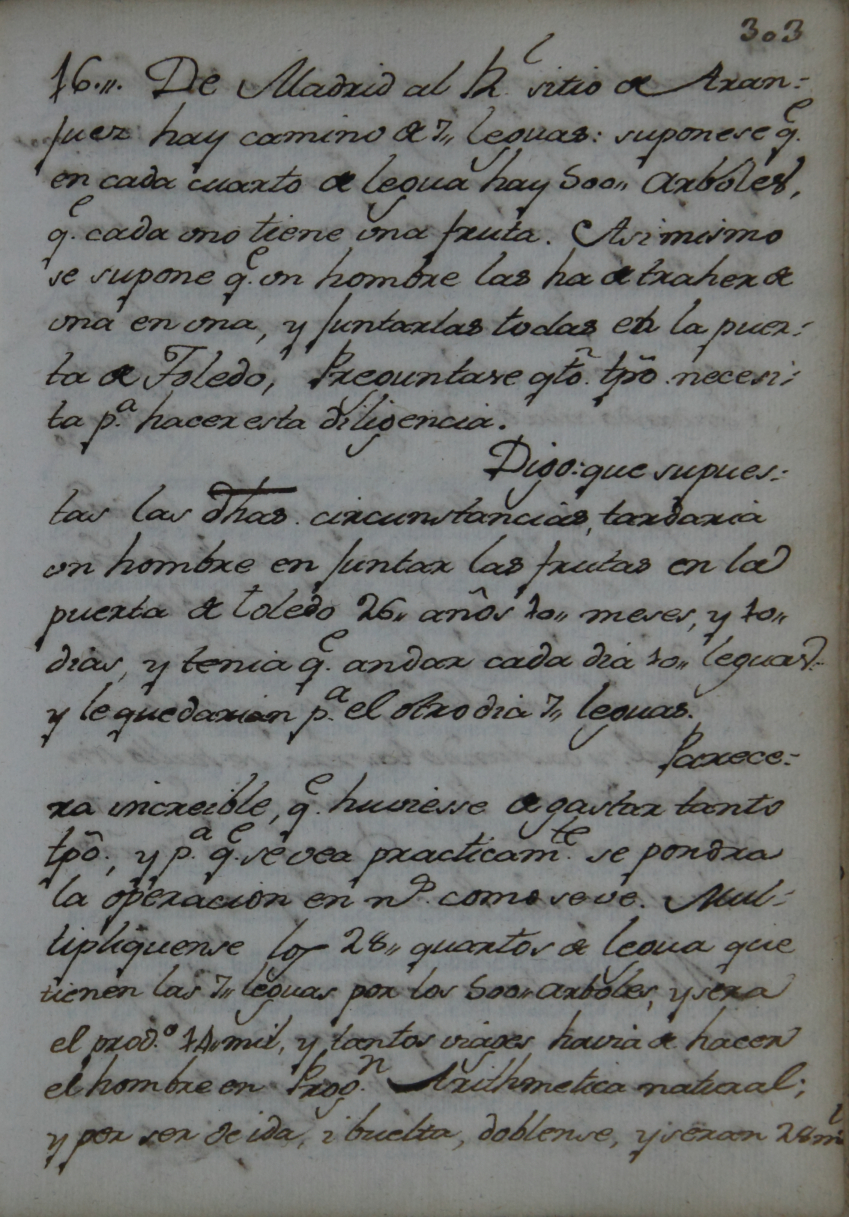 303
16.,, De Madrid al R.l sitio de Aran-
juez hay camino de 7,, leguas: suponese q.e
en cada cuarto de legua hay 500,, arboles,
q.e cada uno tiene una fruta. Asimismo
se supone q.e un hombre las ha de traher de
una en una, y juntarlas todas en la puer-
ta de Toledo, Preguntase qto. tpo. necesi-
ta p.a hacer esta diligencia.
Digo: que supues-
tas las dhas. circunstancias, tardaria
un hombre en juntar las frutas en la
puerta de toledo 26,, años 10,, meses, y 10,,
dias, y tenia q.e andar cada dia 10,, leguas.
y le quedarian p.a el otro dia 7,, leguas.
Parece-
ra increible, q.e huviesse de gastar tanto
tpo., y p.a q.e se vea practicam.te se pondra
la operacion en n.o como se ve. Mul-
tipliquense los 28,, quartos de legua que
tienen las 7,, leguas por los 500,, arboles, y sera
el prod.o 14,, mil, y tantos viages havia de hacer
el hombre en Prog.n Arithmetica natural;
y por ser de ida, i buelta, doblense, y seran 28 m.l